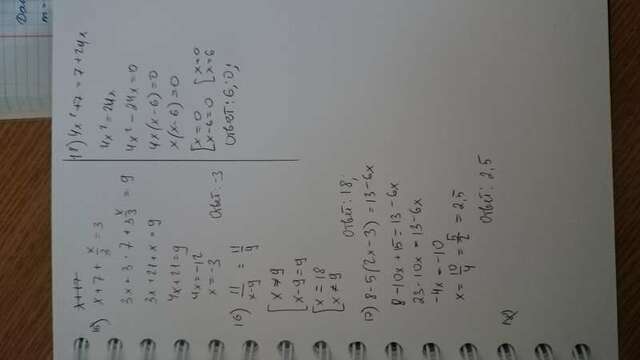 x+17
15) x + 7 + x/3 = 3
3x + 3 · 7 + 3x/3 = 9
3x + 21 + x = 9
4x + 21 = 9
4x = -12
x = -3
Ответ: -3
16) 11/(x-9) = 11/9
[x ≠ 9
x - 9 = 9
[x = 18
x ≠ 9
Ответ: 18;
17) 8 - 5(2x - 3) = 13 - 6x
8 - 10x + 15 = 13 - 6x
23 - 10x = 13 - 6x
-4x = -10
x = 10/4 = 5/2 = 2,5
Ответ: 2,5
18) 4x² + 7 = 7 + 24x
4x² = 24x
4x² - 24x = 0
4x(x - 6) = 0
x(x - 6) = 0
[x = 0 [x = 0
x - 6 = 0 x = 6
Ответ: 6; 0;